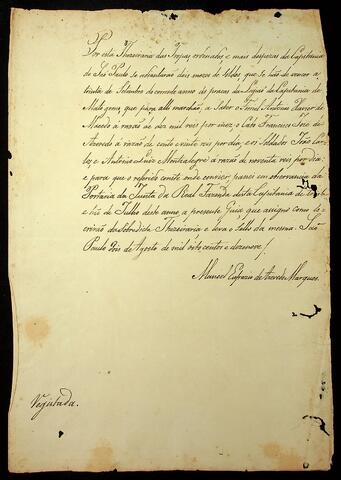 Por esta Thezoiraria das Tropas, ordenados, e mais despezas da Capitania
de São Paulo se adiantarão dois mezes de soldo, que se hão de vencer a
trinta de Setembro do corrente anno as praças da Capitania de
Mato groço, que para alli marchão, a saber o Antonio Xavier de
Macedo á razão de dez mil reis por mez, o Cabo Francisco Jose de
Azevedo á razão de cento e vinte reis por dia, e os Soldados João
e Antonio Luiz Montealegre á razão de noventa reis por dia:
e para que o referido conste onde convier passei em observancia da
Portaria da Junta da Real Fazenda desta Capitania de
de Julho deste anno, a presente Guia que assigno como
crivão da Sobredita Thezoiraria e leva o Sello da mesma. São
Paulo dois de Agosto de mil oito centos e dezenove.
Manoel Eufrazio de Azevedo Marques.
Registada.